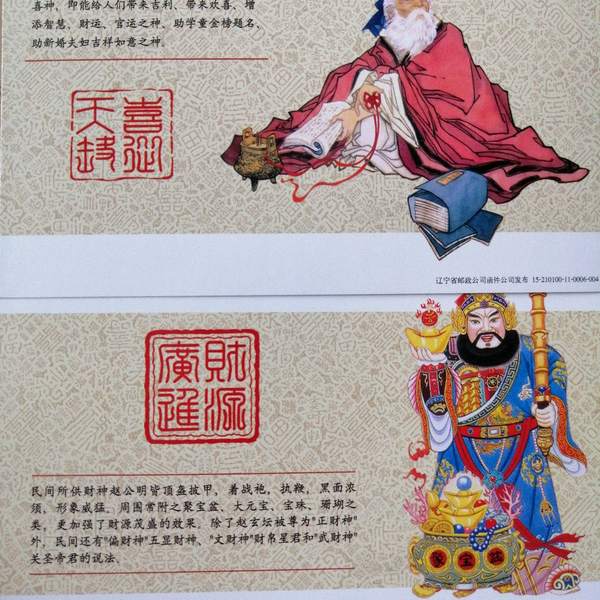 喜神，即能给人们带来吉利、带来欢喜、增
添智慧、财运、官运之神、助学童金榜题名、
助新婚夫妇吉祥如意之神。
喜從
天降
辽宁省邮政公司函件公司发布 15-210100-11-0006-004
財源
廣進
民间所供财神赵公明皆顶盔披甲，着战袍，执鞭，黑面浓
须，形象威猛。周围常附之聚宝盆、大元宝、宝珠、珊瑚之
类，更加强了财源茂盛的效果。除了赵玄坛被尊为"正财神"
外，民间还有"偏财神"五显财神、"文财神"财帛星君和"武财神"
关圣帝君的说法。
聚宝盆